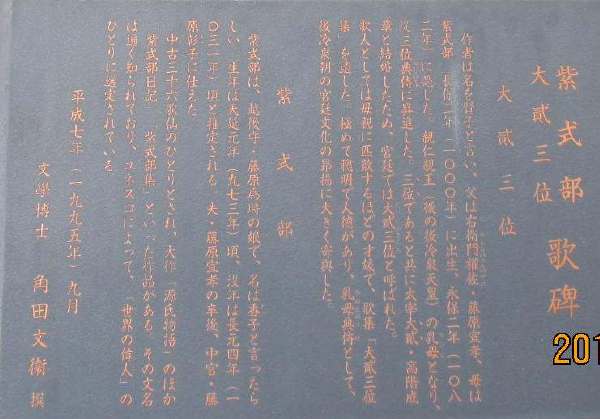 紫式部 歌碑
大貳三位
大貳三位
作者は名を賢子と言い、父は右衛門権佐・藤原宣孝、母は
紫式部。長保二年(一〇〇〇年)に出生、永保二年(一〇八
二年)に歿した。親仁親王(後の後冷泉天皇)の乳母となり、
従三位典侍に昇進した。三位であると共に太宰大貳・高階成
章と結婚したため、宮廷では大貳三位と呼ばれた。
歌人としては母親に匹敵するほどの才媛で、歌集「大貳三位
集」を遺した。極めて聡明で人徳があり、乳母典侍として、
後冷泉朝の宮廷文化の昂揚に大きく寄与した。
紫式部
紫式部は、越後守・藤原為時の娘で、名は香子と言ったら
しい。生年は天延元年(九七三年)頃、没年は長元四年(一
〇三一年)頃と推定される。夫・藤原宣孝の卒後、中宮・藤
原彰子に仕えた。
中古三十六歌仙のひとりとされ、大作「源氏物語」のほか
「紫式部日記」、「紫式部集」といった作品がある。その文名
は遍く知られており、ユネスコによって、「世界の偉人」の
ひとりに選定されている。
平成七年(一九九五年)九月
文學博士 角田文衞 撰
201